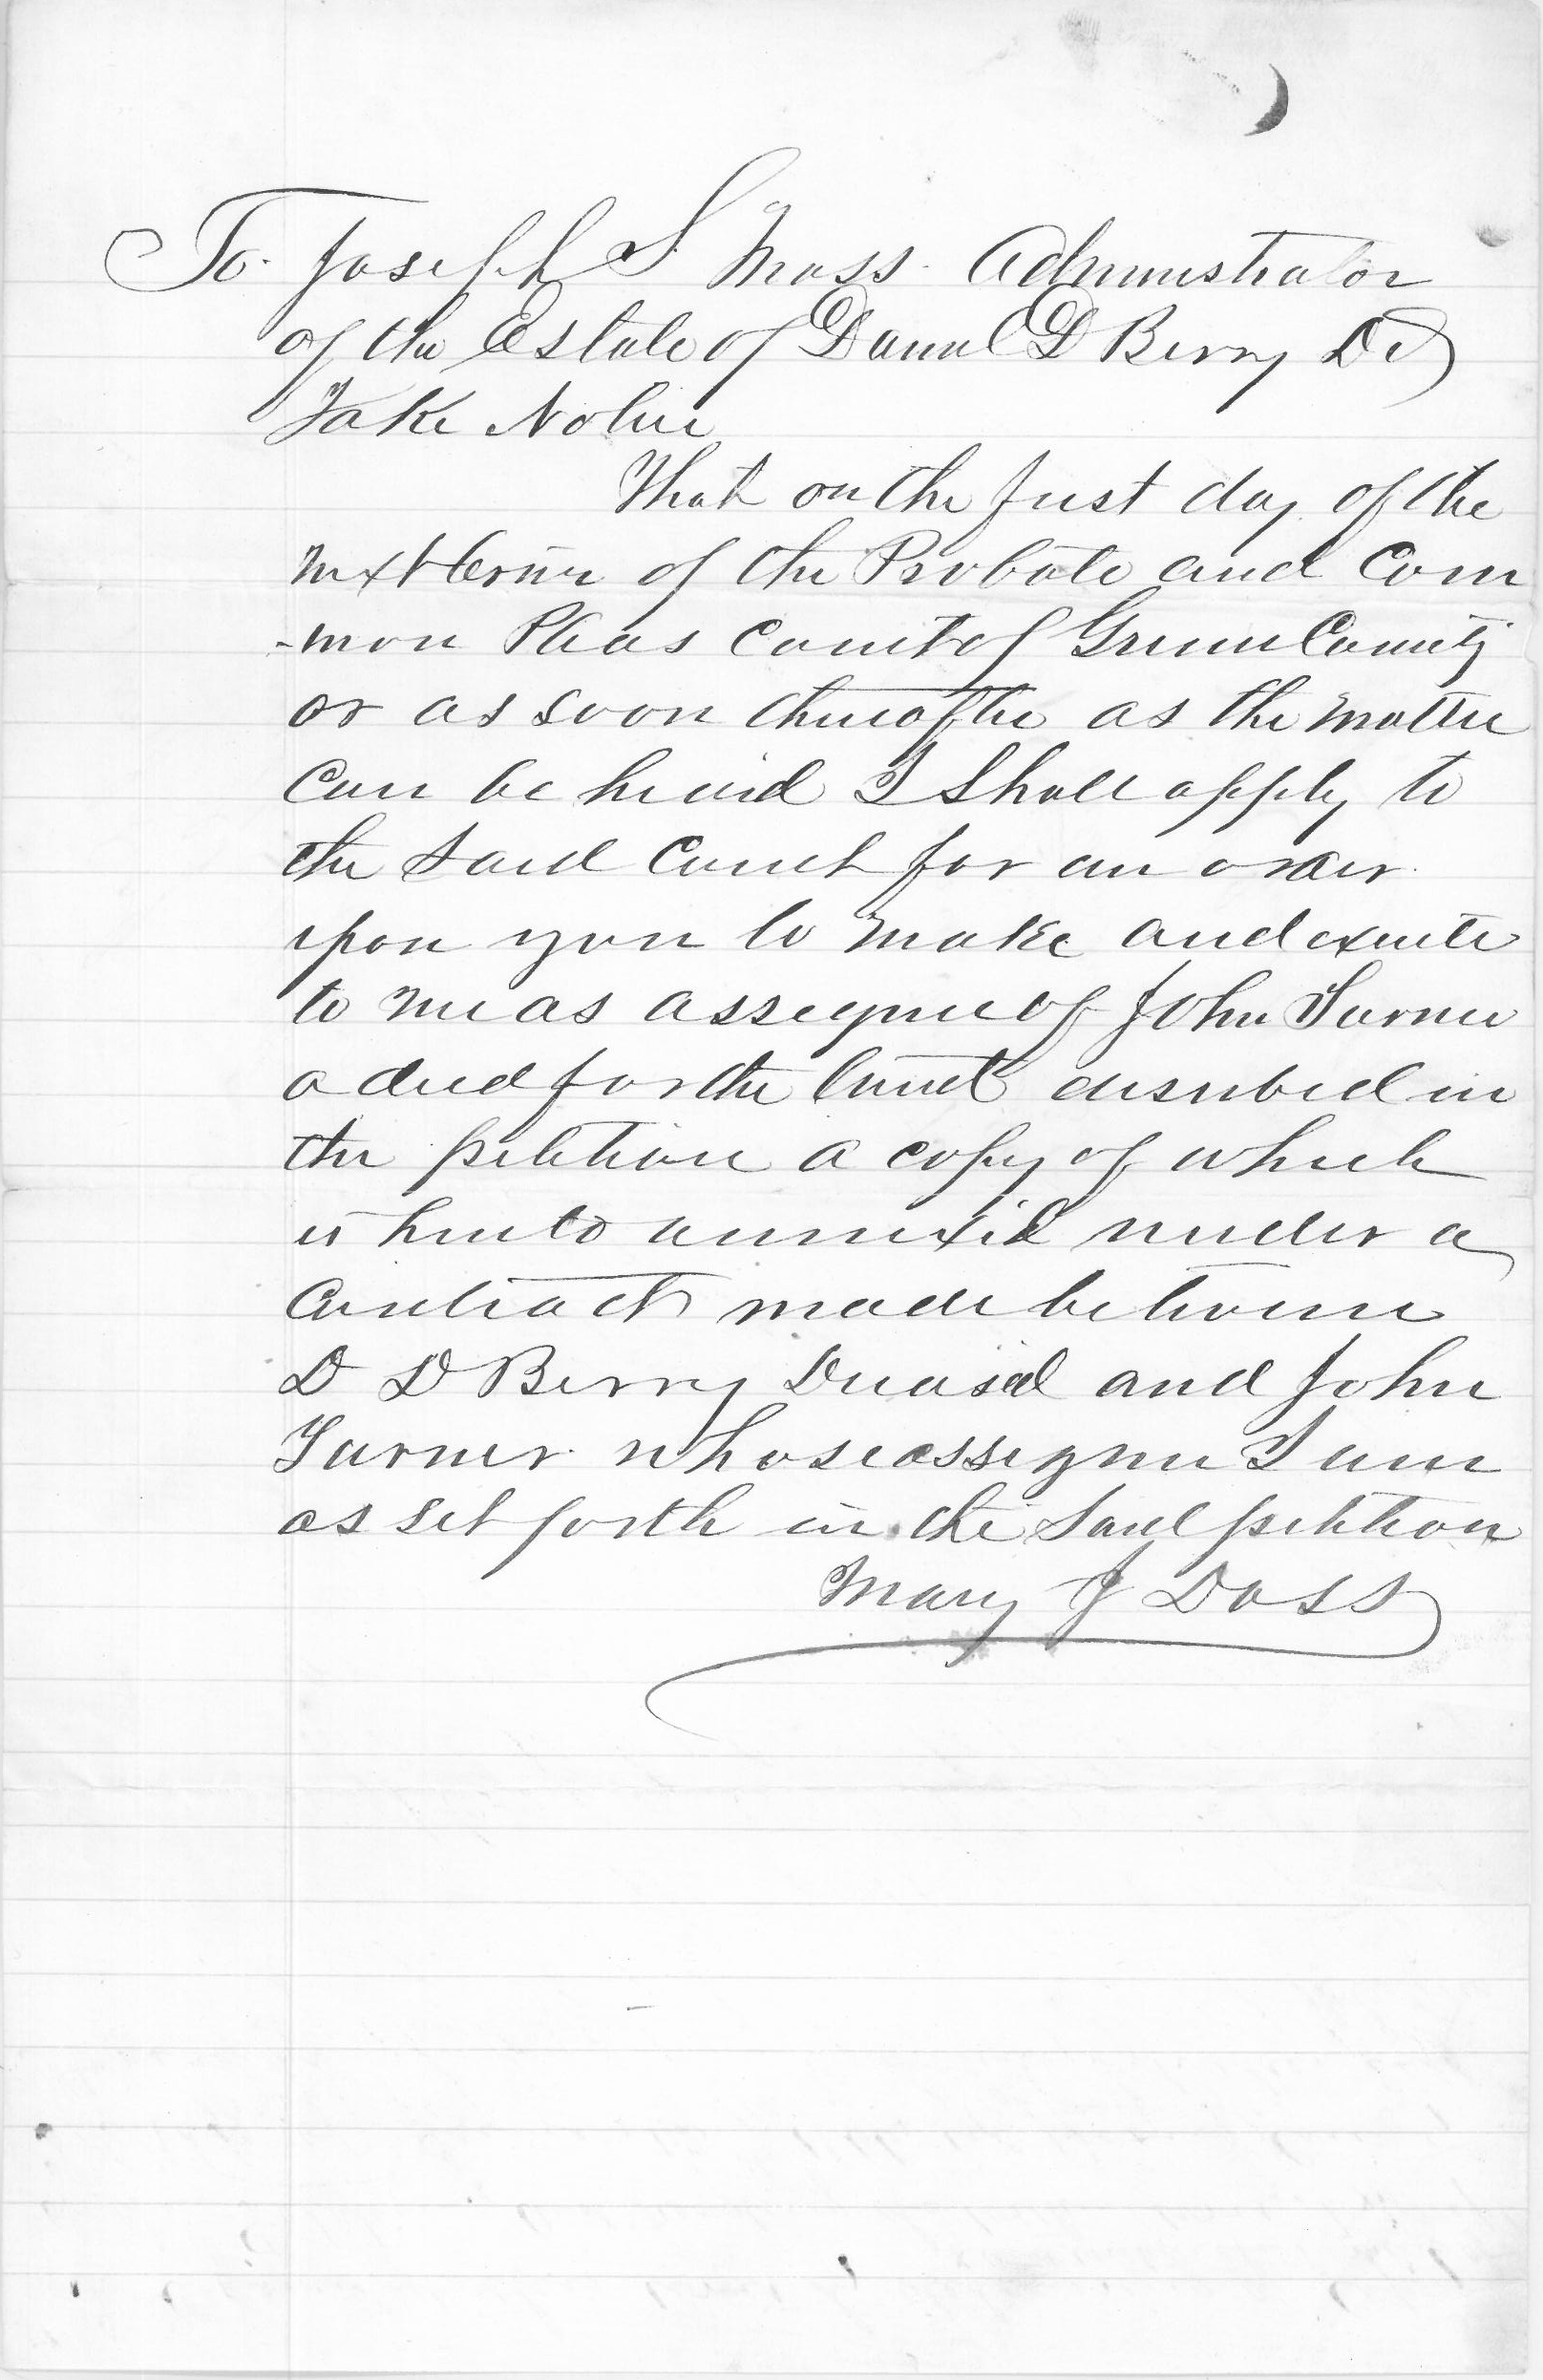 To Joseph S Moss Administrator
of the Estate of Daniel D Berry Decd
Take Notice
That on the first day of the
next term of the Probate and Com
-mon Pleas Court of Greene County
or as soon thereafter as the matter
Can be heard I Shall apply to
the Said Court for an order
upon you to make and execute
to me as assignee of John Turner
a deed for the land described in
the petition a copy of which
is hereto annexed under a
Contract made between
D D Berry Deceased and John
Turner whose assignee I am
as set forth in the Said petition
Mary J Doss